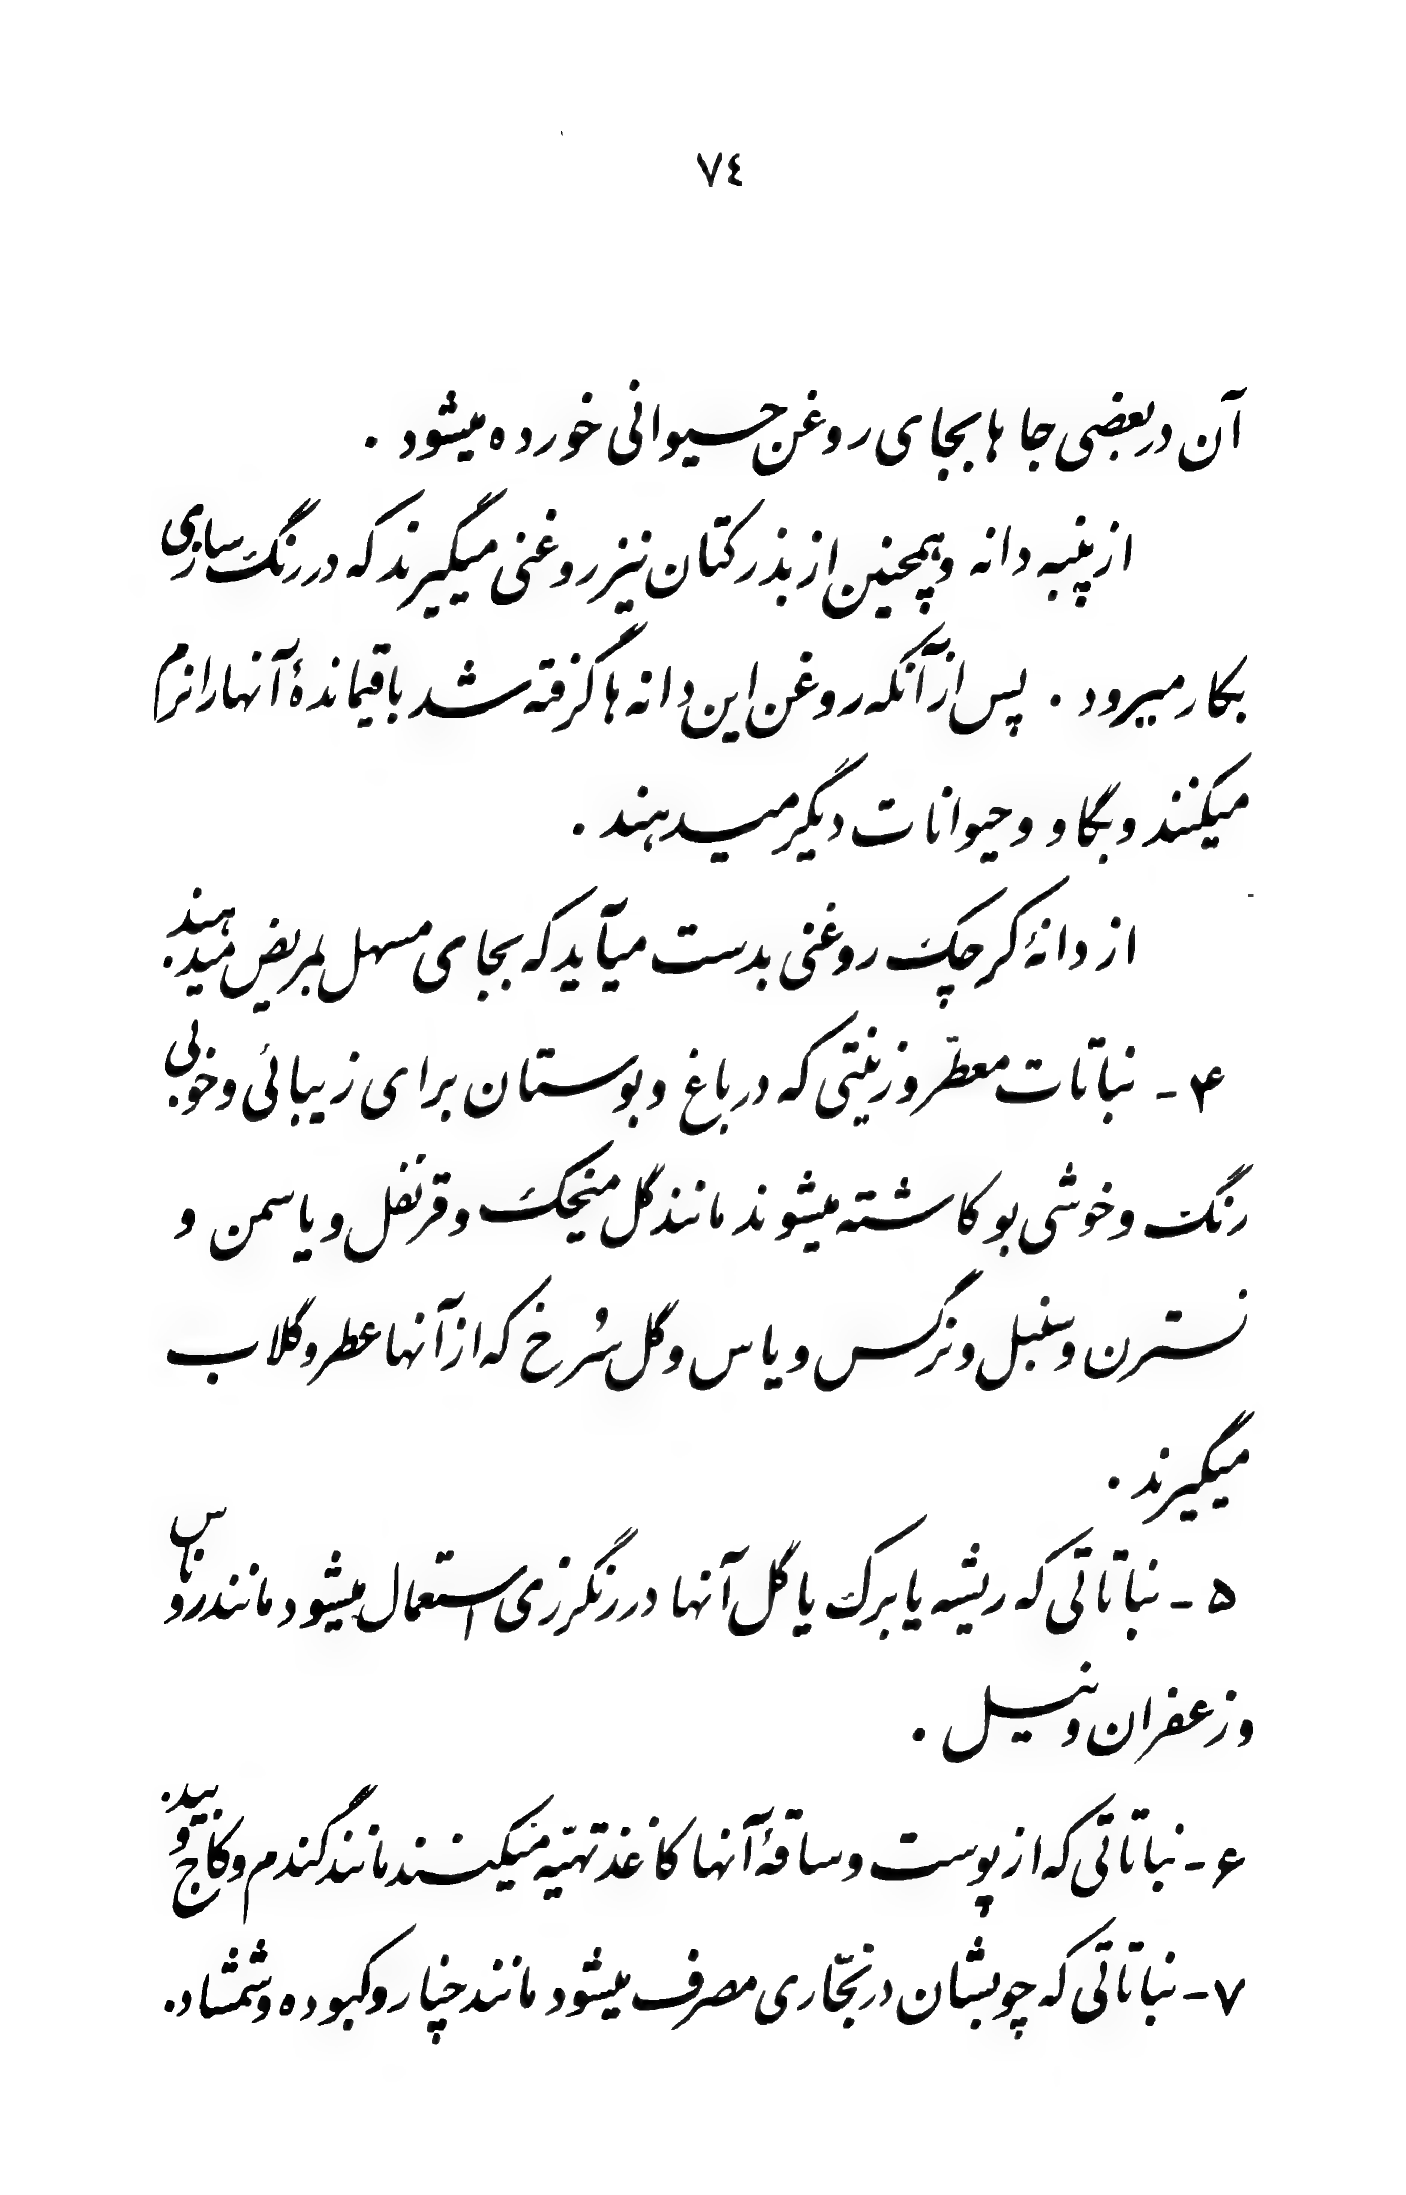 ٧٤
آن در بعضی جا ها بجای روغن حیوانی خورده میشود .
از پنبه دانه و همچنین از بذر کتان نیز روغنی میگیرند که در رنگ سازی
بکار میرود . پس از آنکه روغن این دانه ها گرفته شد باقیماندهٔ آنها را نرم
میکنند و بگاو و حیوانات دیگر میدهند .
از دانهٔ کرچک روغنی بدست میآید که بجای مسهل بمریض میدهند .
۴ - نباتات معطّر و زینتی که در باغ و بوستان برای زیبائی و خوبی
رنگ و خوشی بو کاشته میشوند مانند گل میخک و قرنفل و یاسمن و
نسترن و سنبل و نرگس و یاس و گل سُرخ که از آنها عطر و گلاب
میگیرند .
۵ - نباتاتی که ریشه یا برگ یا گل آنها در رنگرزی استعمال میشود مانند روناس
و زعفران و نیل .
۶ - نباتاتی که از پوست و ساقهٔ آنها کاغذ تهیّه میکنند مانند گندم و کاج و بید .
۷ - نباتاتی که چوبشان در نجّاری مصرف میشود مانند چنار و کبوده و شمشاد .